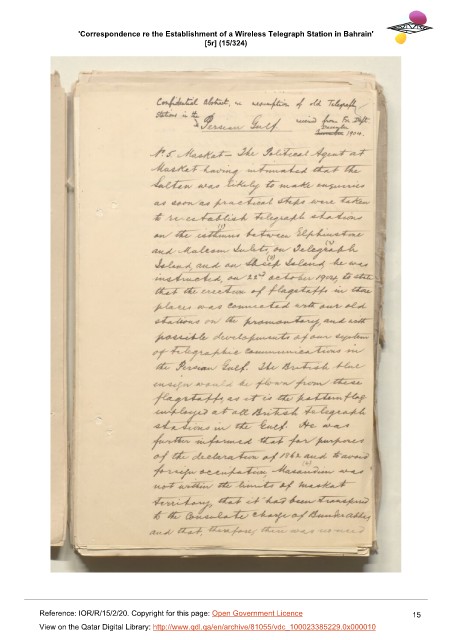 'Correspondence re the Establishment of a Wireless Telegraph Station in Bahrain'
[5r] (15/324)
Confidential Abstract, re resumption of old Telegraph
Stations in the
Persian Gulf. received from Fn. Dept.
1904.
No. 5. Maskat – The Political Agent at
Maskat having intimated that the
Sultan was likely to make enquiries
as soon as practical steps were taken
to re-establish telegraph stations
on the isthmus between Elphinstone
and Malcom Inlets, on Telegraph
Island, and on Sheep Island he was
instructed, on 22nd October 1904, to state
that the erection of flagstaffs in those
places was connected with our old
stations on the promontory, and with
possible developments of our system
of telegraphic communications in
the Persian Gulf. The British blue
ensign would be flown from these
flagstaffs as it is the pattern flag
employed at all British telegraph
stations in the Gulf. He was
further informed that for purposes
of the declaration of 1862 and to avoid
foreign occupation Masandim was
not within the limits of Maskat
territory, that it had been transferred
to the Consulate charge of Bunder Abbas
and that, therefore, there was no need
Reference: IOR/R/15/2/20. Copyright for this page: Open Government Licence
15
View on the Qatar Digital Library: http://www.qdl.qa/en/archive/81055/vdc_100023385229.0x000010